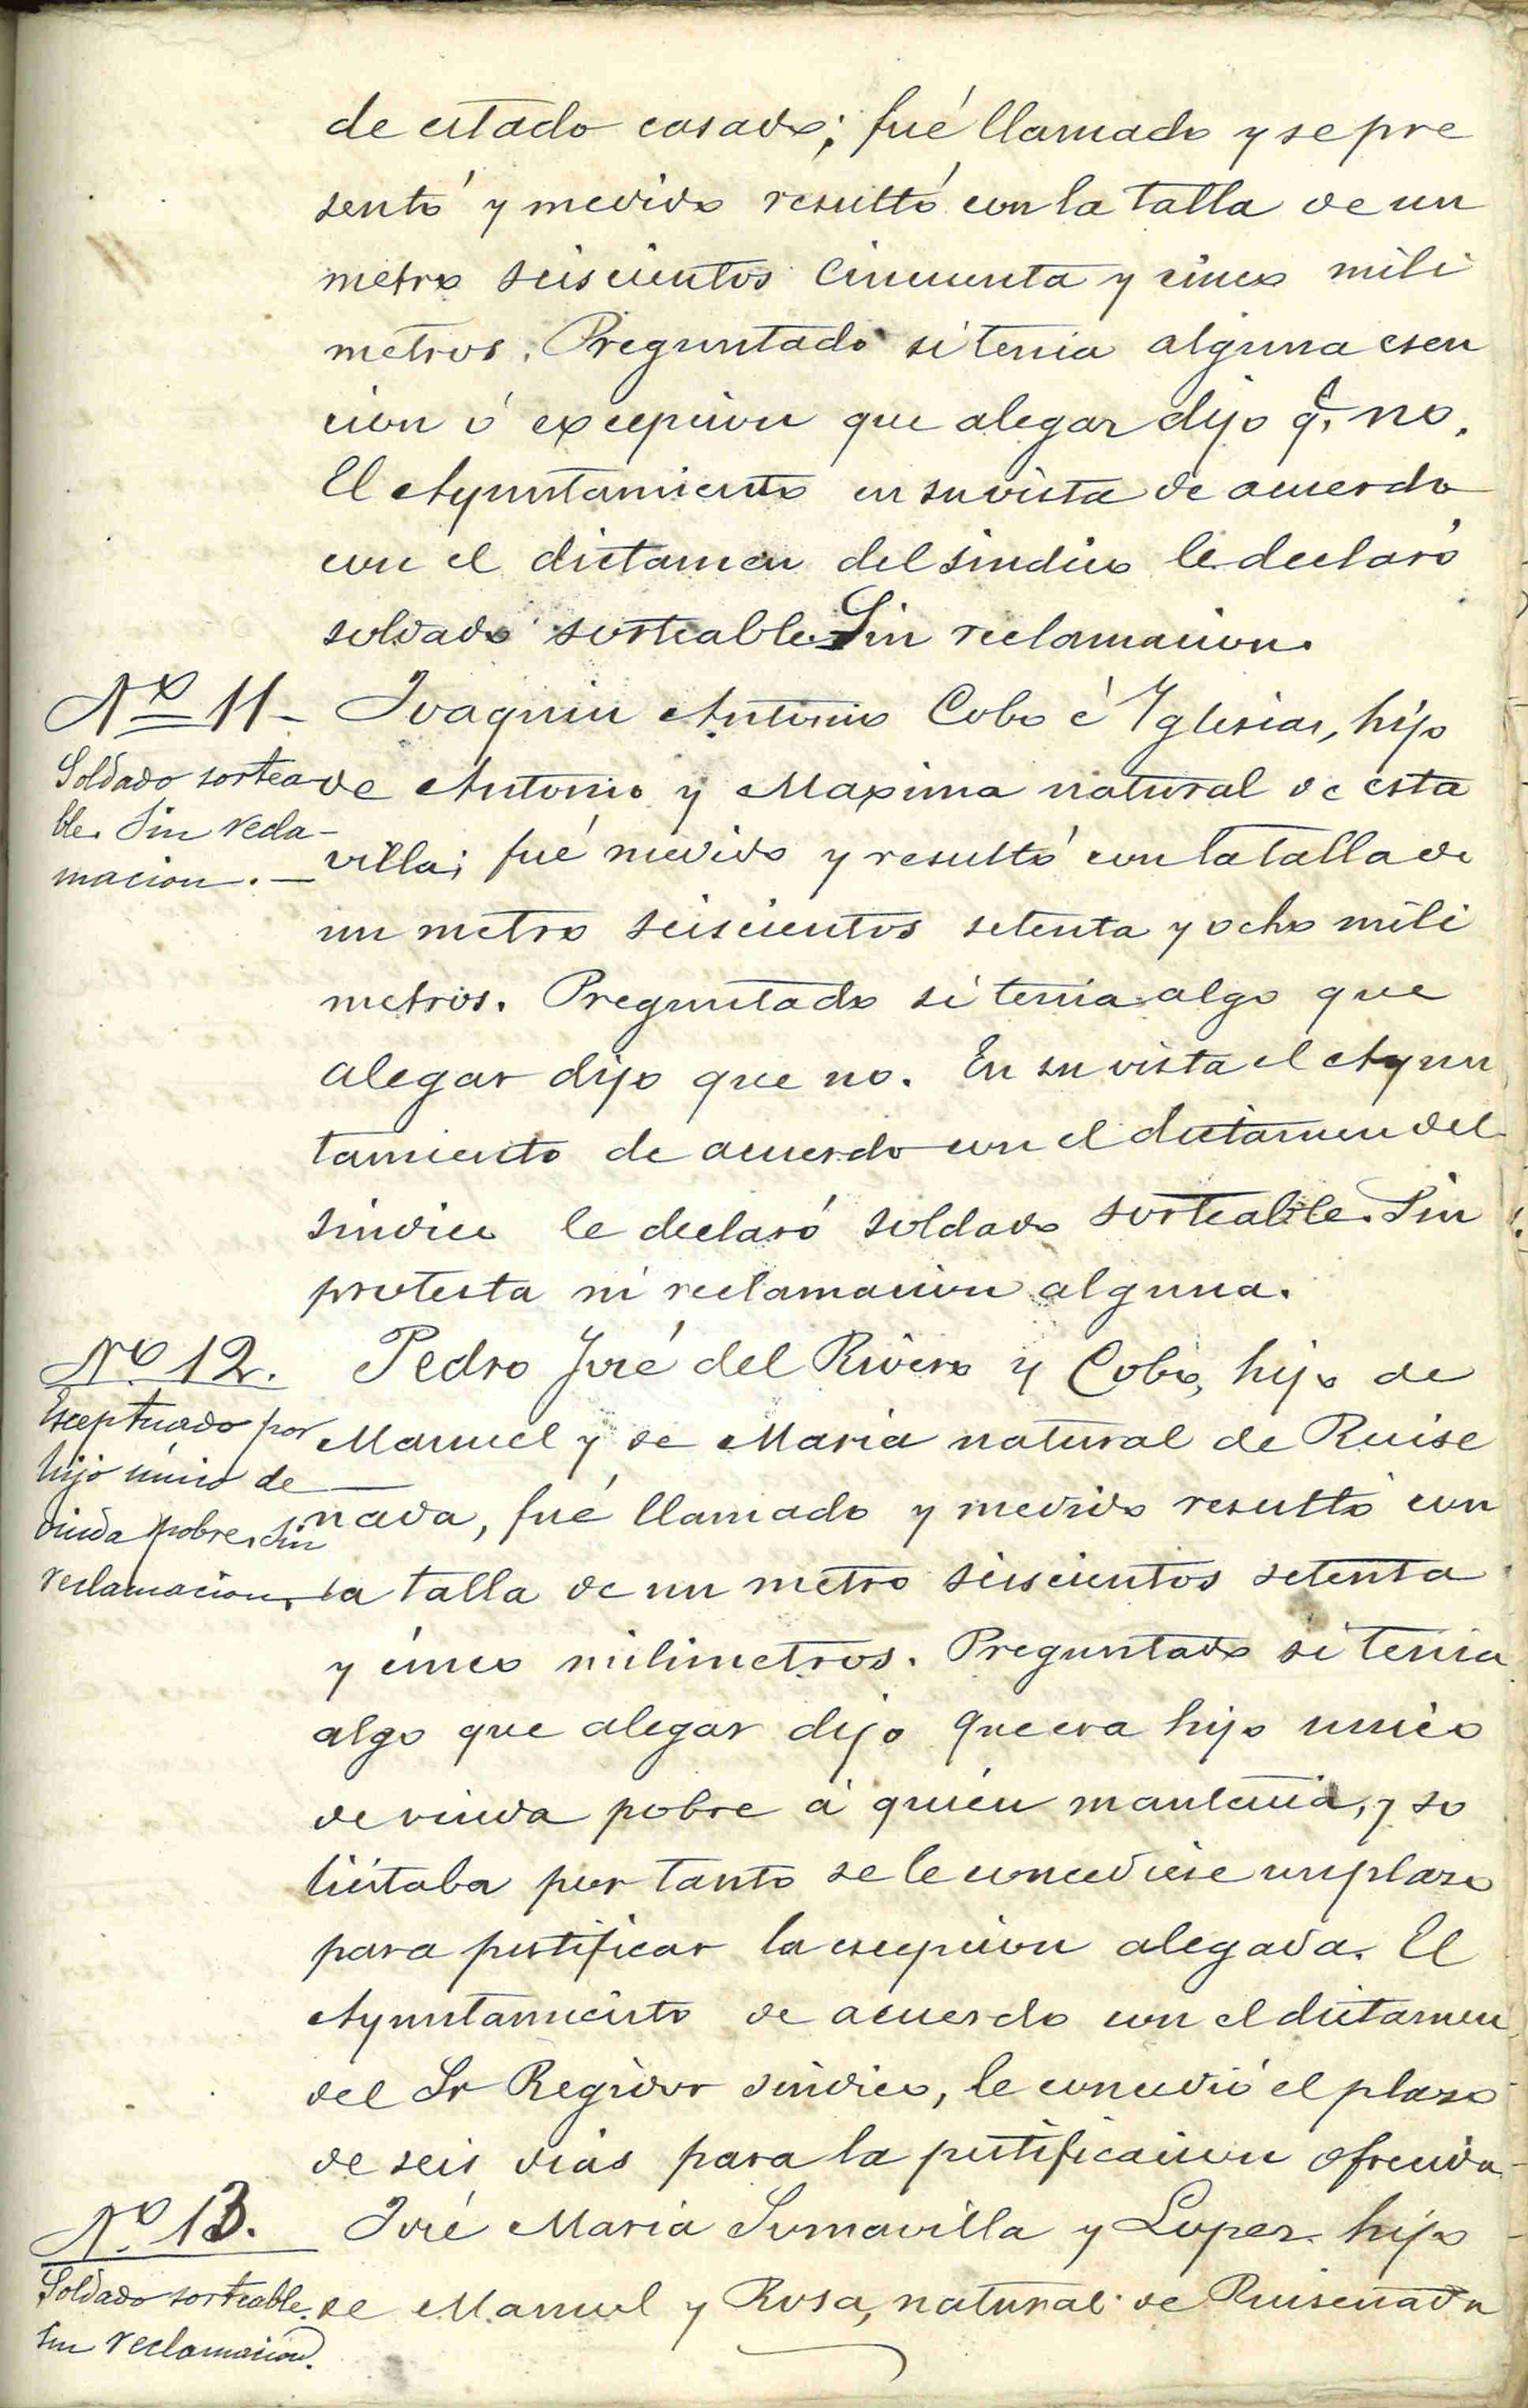 de estado casado; fué llamado y se pre
sentó y medido resultó con la talla de un
metro seiscientos cincuenta y cinco mili
metros. Preguntado si tenia alguna esen
cion ó excepcion que alegar dijo q.e no.
El Ayuntamiento en su vista de acuerdo
con el dictamen del sindico le declaró
soldado sorteable. Sin reclamacion.
No 11- Joaquin Antonio Cobo é Yglesias, hijo
Soldado sortea
ble. Sin recla-
macion. —
de Antonio y Maxima natural de esta
villa; fué medido y resultó con la talla de
un metro seiscientos setenta y ocho mili
metros. Preguntado si tenia algo que
alegar dijo que no. En su vista el Ayun
tamiento de acuerdo con el dictamen del
sindico le declaró soldado sorteable. Sin
protesta ni reclamacion alguna.
No 12. Pedro José del Rivero y Cobo, hijo de
Esceptuado por
hijo único de
viuda pobre. Sin
reclamacion.
Manuel y de Maria natural de Ruise
nada, fué llamado y medido resultó con
la talla de un metro seiscientos setenta
y cinco milimetros. Preguntado si tenia
algo que alegar dijo que era hijo unico
de viuda pobre á quién mantenia, y so
licitaba por tanto se le concediese un plazo
para justificar la escepcion alegada. El
Ayuntamiento de acuerdo con el dictamen
del Sr Regidor sindico, le concedió el plazo
de seis dias para la justificacion ofrecida
No 13. José Maria Somavilla y Lopez. hijo
Soldado sorteable.
Sin reclamacion.
de Manuel y Rosa, natural de Ruisenada